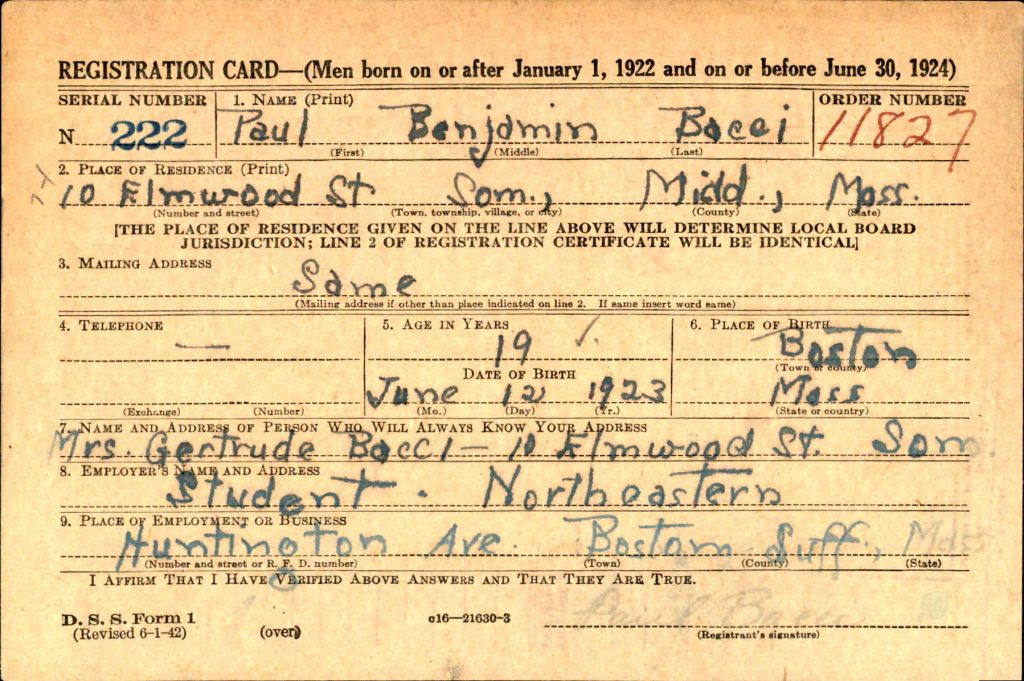 REGISTRATION CARD—(Men born on or after January 1, 1922 and on or before June 30, 1924)
SERIAL NUMBER 1. NAME (Print) ORDER NUMBER
N 222 Paul Benjamin Bacci 11827
(First) (Middle) (Last)
2. PLACE OF RESIDENCE (Print)
10 Elmwood St Som., Midd., Mass.
(Number and street) (Town, township, village, or city) (County) (State)
[THE PLACE OF RESIDENCE GIVEN ON THE LINE ABOVE WILL DETERMINE LOCAL BOARD
JURISDICTION; LINE 2 OF REGISTRATION CERTIFICATE WILL BE IDENTICAL]
3. MAILING ADDRESS
Same
(Mailing address if other than place indicated on line 2. If same insert word same)
4. TELEPHONE 5. AGE IN YEARS 6. PLACE OF BIRTH
— 19 Boston
DATE OF BIRTH (Town or county)
June 12 1923 Mass
(Exchange) (Number) (Mo.) (Day) (Yr.) (State or country)
7. NAME AND ADDRESS OF PERSON WHO WILL ALWAYS KNOW YOUR ADDRESS
Mrs. Gertrude Bacci — 10 Elmwood St. Som.
8. EMPLOYER'S NAME AND ADDRESS
Student . Northeastern
9. PLACE OF EMPLOYMENT OR BUSINESS
Huntington Ave. Boston Suff., Mass
(Number and street or R. F. D. number) (Town) (County) (State)
I AFFIRM THAT I HAVE VERIFIED ABOVE ANSWERS AND THAT THEY ARE TRUE.
D. S. S. Form 1
(Revised 6-1-42) (over) c16—21630-3
(Registrant's signature)